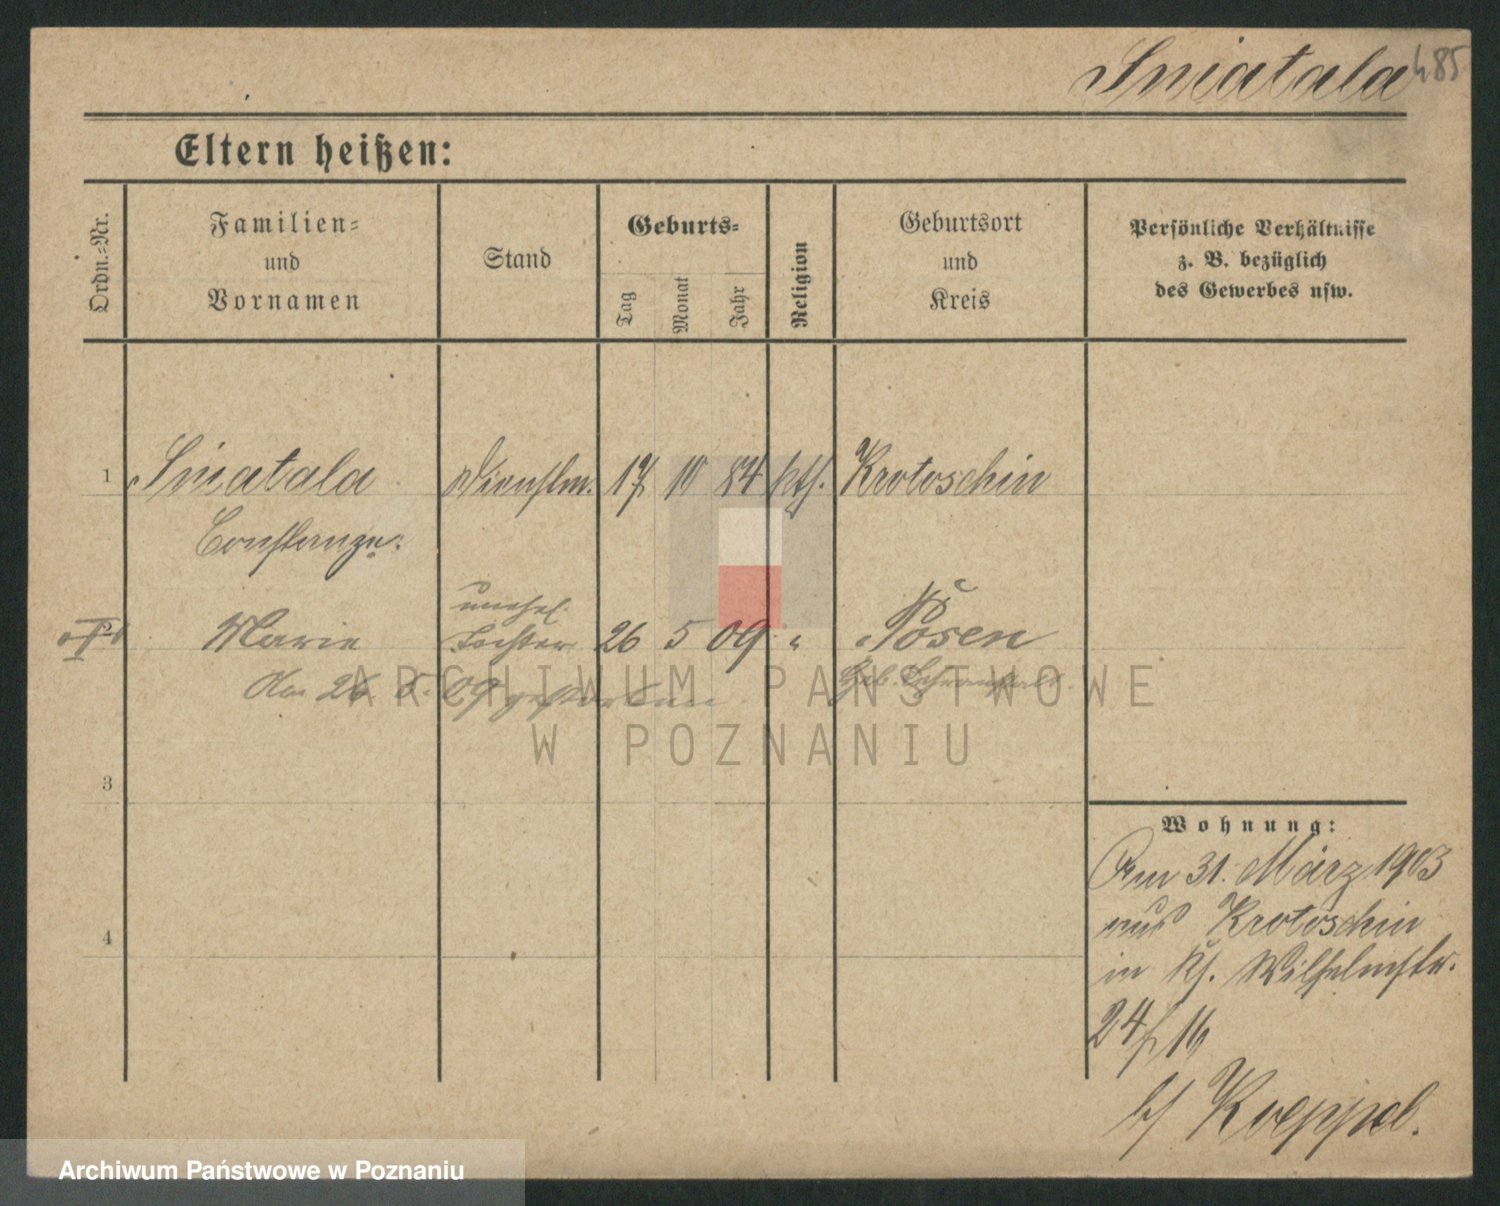 Sniatala 485
Eltern heißen:
Ordn.-Nr.
Familien-
und
Vornamen
Stand
Geburts-
Tag
Monat
Jahr
Religion
Geburtsort
und
Kreis
Persönliche Verhältnisse
z. B. bezüglich
des Gewerbes usw.
1 Sniatala Dienstm. 17 10 84 kth. Krotoschin
Constanze.
2 Marie unehel. Tochter 26 5 09 " Posen
Am 26. 5. 09 gestorben
Geb.
ARCHIWUM PAŃSTWOWE
W POZNANIU
3
4
Wohnung:
Am 31. März 1903
aus Krotoschin
in Wilhelmstr.
24/16
b/ Koeppel.
Archiwum Państwowe w Poznaniu